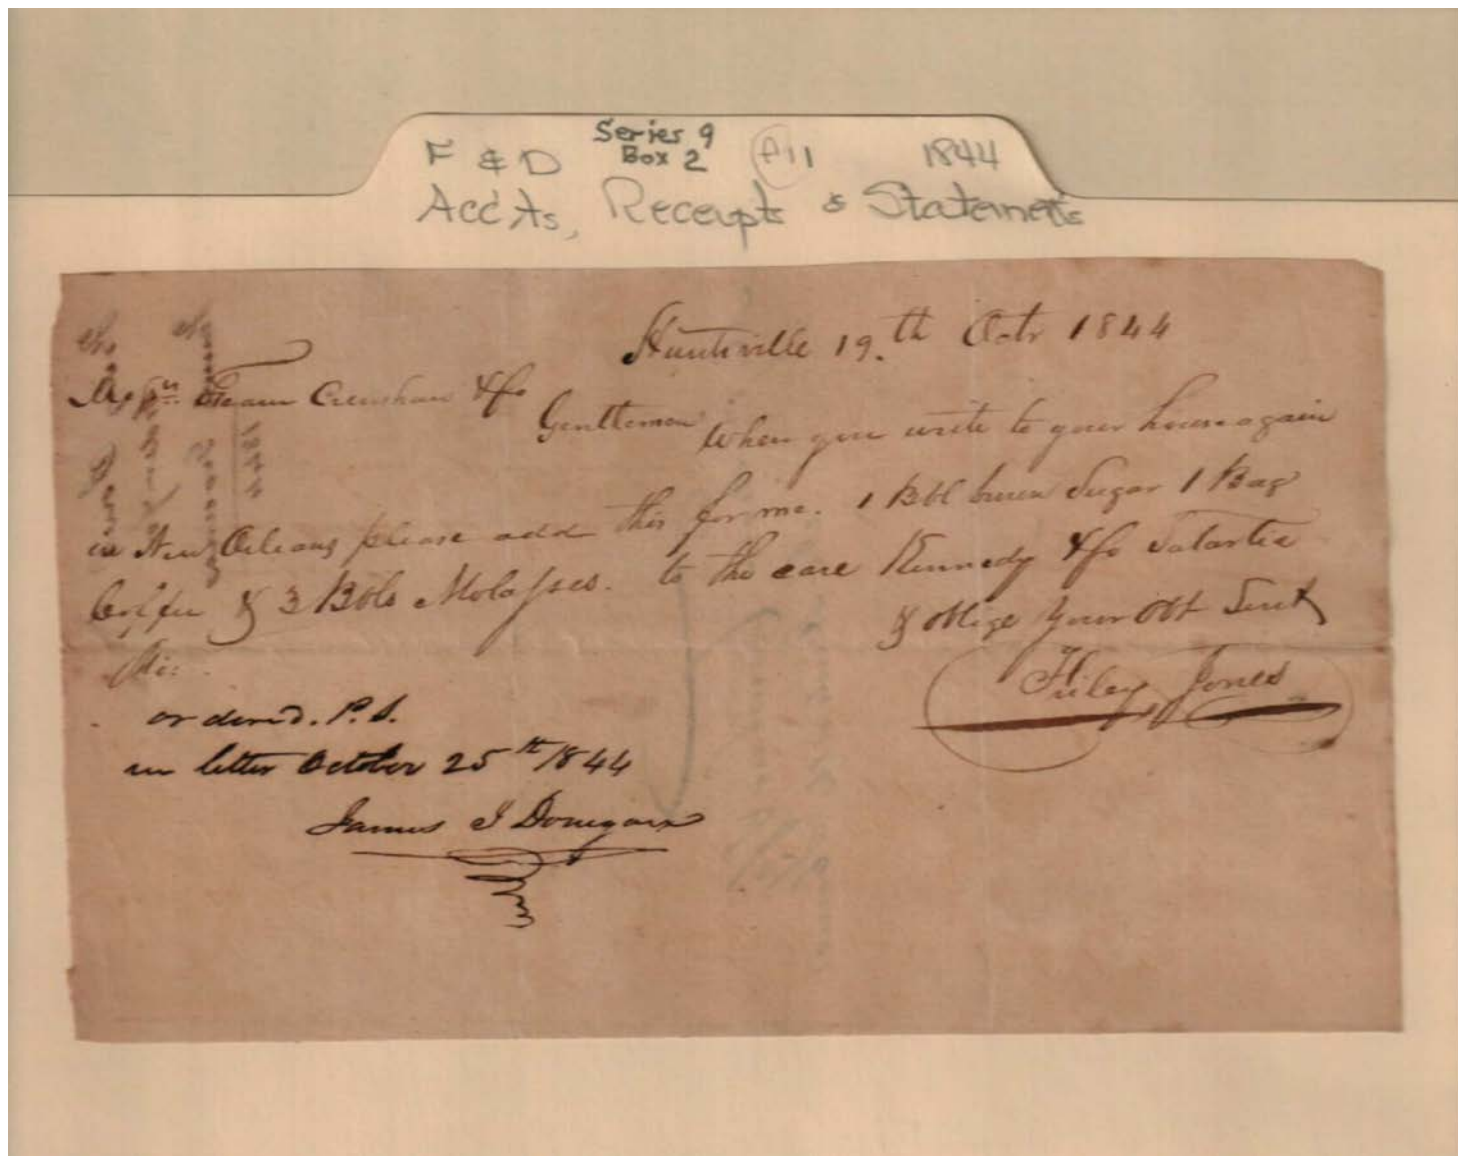 Series 9
F & D Box 2 A11 1844
Acc'ts, Receipts & Statements
Huntsville 19.th Octr 1844
Messrs. Crenshaw & Co
Gentlemen When you write to your house again
in New Orleans please add this for me. 1 Bbl brown Sugar 1 Bag
Coffee & 3 Bbls Molasses. to the care Kennedy & Co Satartia
& oblige your Obt Servt
Mi:
Friley Jones
ordered. P.S.
in letter October 25th 1844
James J Donegan